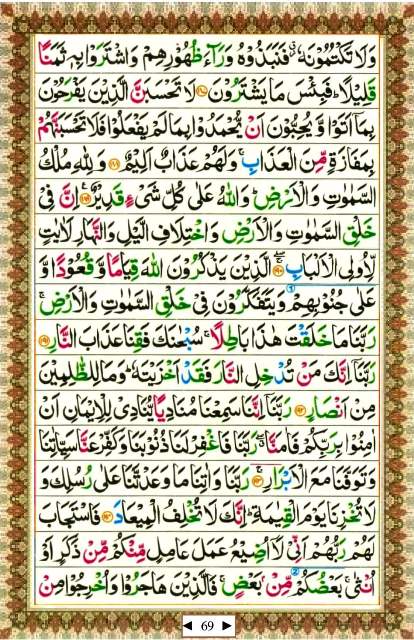 وَلَا تَكْتُمُوْنَهٗ ۫ فَنَبَذُوْهُ وَرَآءَ ظُهُوْرِهِمْ وَاشْتَرَوْا بِهٖ ثَمَنًا
قَلِيْلًا ؕ فَبِئْسَ مَا يَشْتَرُوْنَ ﴿۱۸۷﴾ لَا تَحْسَبَنَّ الَّذِيْنَ يَفْرَحُوْنَ
بِمَاۤ اَتَوْا وَّ يُحِبُّوْنَ اَنْ يُّحْمَدُوْا بِمَا لَمْ يَفْعَلُوْا فَلَا تَحْسَبَنَّهُمْ
بِمَفَازَةٍ مِّنَ الْعَذَابِ ۚ وَلَهُمْ عَذَابٌ اَلِيْمٌ ﴿۱۸۸﴾ وَلِلّٰهِ مُلْكُ
السَّمٰوٰتِ وَالْاَرْضِ ؕ وَاللّٰهُ عَلٰى كُلِّ شَىْءٍ قَدِيْرٌ ﴿۱۸۹﴾ اِنَّ فِىْ
خَلْقِ السَّمٰوٰتِ وَالْاَرْضِ وَاخْتِلَافِ الَّيْلِ وَالنَّهَارِ لَاٰيٰتٍ
لِّاُولِى الْاَلْبَابِ ﴿۱۹۰﴾ الَّذِيْنَ يَذْكُرُوْنَ اللّٰهَ قِيَامًا وَّقُعُوْدًا وَّ
عَلٰى جُنُوْبِهِمْ وَيَتَفَكَّرُوْنَ فِىْ خَلْقِ السَّمٰوٰتِ وَالْاَرْضِ ۚ
رَبَّنَا مَا خَلَقْتَ هٰذَا بَاطِلًا ۚ سُبْحٰنَكَ فَقِنَا عَذَابَ النَّارِ ﴿۱۹۱﴾
رَبَّنَاۤ اِنَّكَ مَنْ تُدْخِلِ النَّارَ فَقَدْ اَخْزَيْتَهٗ ؕ وَمَا لِلظّٰلِمِيْنَ
مِنْ اَنْصَارٍ ﴿۱۹۲﴾ رَبَّنَاۤ اِنَّنَا سَمِعْنَا مُنَادِيًا يُّنَادِىْ لِلْاِيْمَانِ اَنْ
اٰمِنُوْا بِرَبِّكُمْ فَاٰمَنَّا ۖ رَبَّنَا فَاغْفِرْ لَنَا ذُنُوْبَنَا وَكَفِّرْ عَنَّا سَيِّاٰتِنَا
وَتَوَفَّنَا مَعَ الْاَبْرَارِ ﴿۱۹۳﴾ رَبَّنَا وَاٰتِنَا مَا وَعَدْتَّنَا عَلٰى رُسُلِكَ وَ
لَا تُخْزِنَا يَوْمَ الْقِيٰمَةِ ؕ اِنَّكَ لَا تُخْلِفُ الْمِيْعَادَ ﴿۱۹۴﴾ فَاسْتَجَابَ
لَهُمْ رَبُّهُمْ اَنِّىْ لَاۤ اُضِيْعُ عَمَلَ عَامِلٍ مِّنْكُمْ مِّنْ ذَكَرٍ اَوْ
اُنْثٰى ۚ بَعْضُكُمْ مِّنْۢ بَعْضٍ ۚ فَالَّذِيْنَ هَاجَرُوْا وَاُخْرِجُوْا مِنْ
69